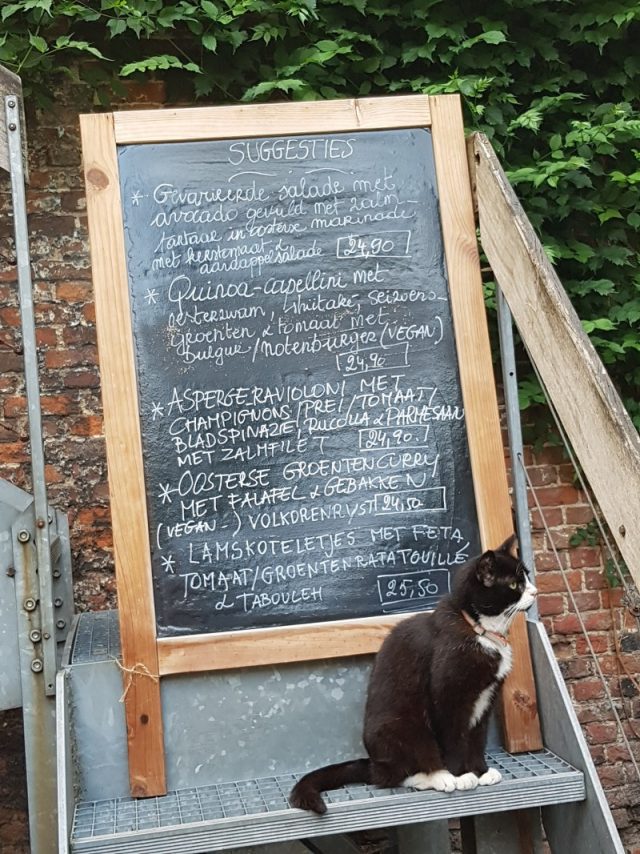 SUGGESTIES
* Gevarieerde salade met
avocado gevuld met zalm-
tartaar in oosterse marinade
met kerstomaat &
aardappelsalade 24,90
* Quinoa-capellini met
oesterzwam, shiitaké, seizoens-
groenten & tomaat met
bulgur/notenburger (VEGAN)
24,90
* ASPERGE RAVIOLONI MET
CHAMPIGNONS/PREI/TOMAAT/
BLADSPINAZIE/RUCOLLA & PARMESAAN
MET ZALMFILET 24,90.
* OOSTERSE GROENTENCURRY
MET FALAFEL & GEBAKKEN
(VEGAN-) VOLKORENRIJST 24,50
* LAMSKOTELETJES MET FETA,
TOMAAT/GROENTENRATATOUILLE
& TABOULEH 25,50